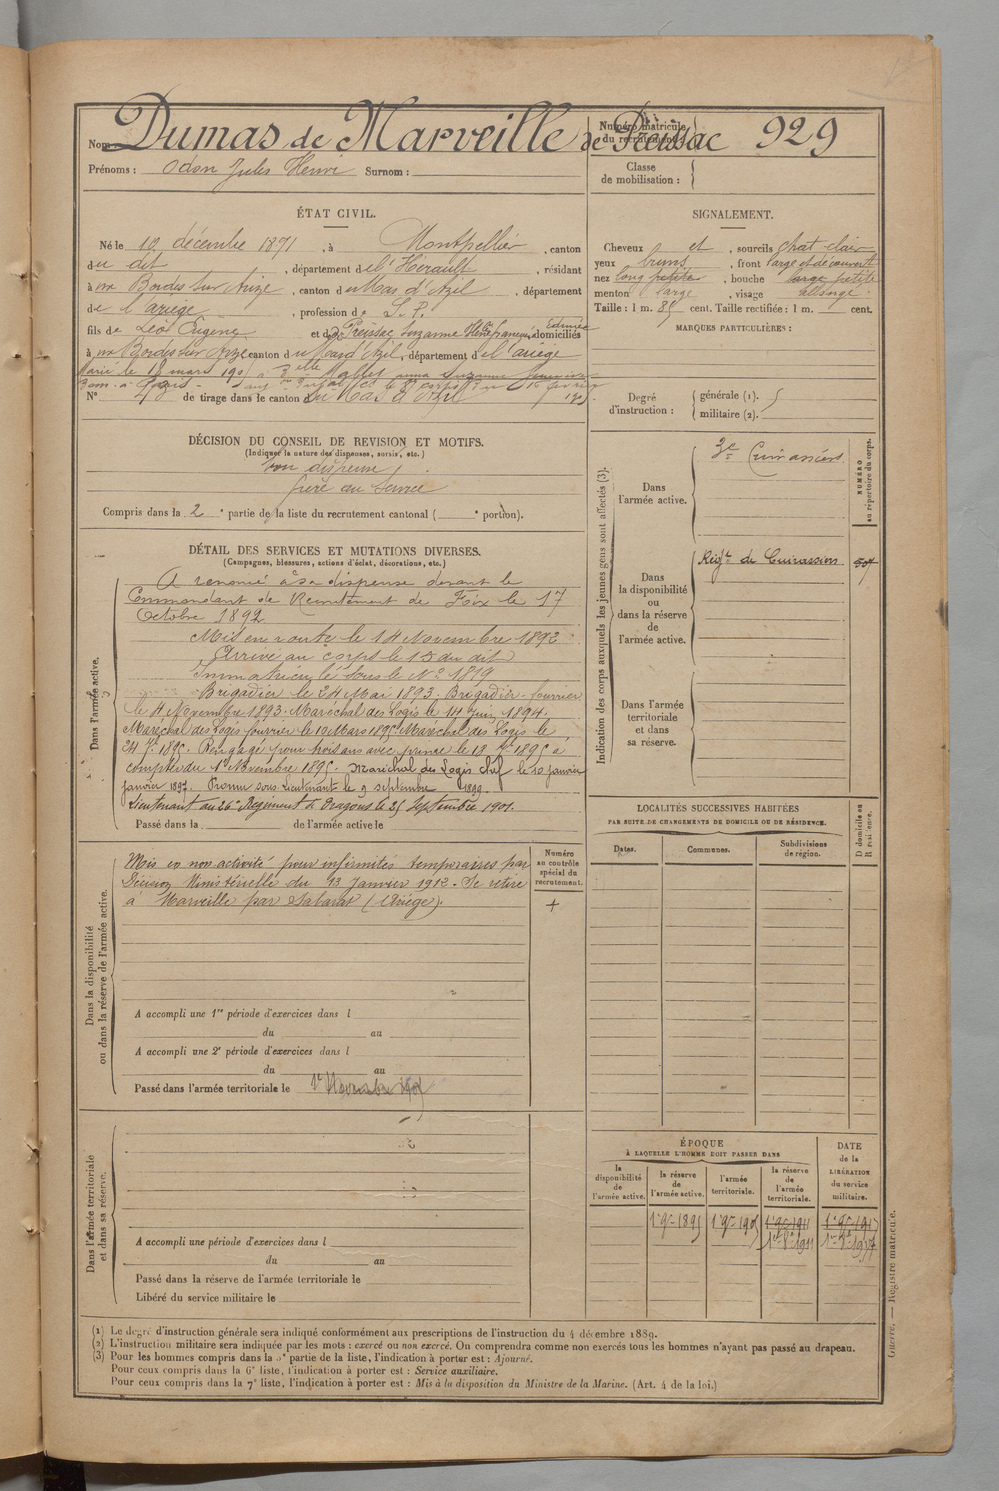 Nom Dumas de Marveille de Preissac
Numéro matricule du recrutement 929
Prénoms : Odon Jules Henri Surnom :
Classe de mobilisation :
ÉTAT CIVIL.
Né le 19 décembre 1871, à Montpellier, canton
du dit, département de l'Hérault, résidant
à Bordes sur Arize, canton du Mas d'Azil, département
de l'ariège, profession de S. P.
fils de Léo Eugène et de de Preissac Suzanne domiciliés
à Bordes sur Arize canton du Mas d'Azil, département de l'ariège
Marié le 18 mars 1905 à Delle Mallet anna Suzanne
N° de tirage dans le canton du Mas d'Azil
DÉCISION DU CONSEIL DE REVISION ET MOTIFS.
(Indiquer la nature des dispenses, sursis, etc.)
bon dispensé
frère au Service
Compris dans la 2e partie de la liste du recrutement cantonal ( e portion).
SIGNALEMENT.
Cheveux et, sourcils chat. clair
yeux bruns, front large et découvert
nez long, bouche petite
menton large, visage allongé.
Taille : 1 m. 85 cent. Taille rectifiée : 1 m. cent.
MARQUES PARTICULIÈRES :
Degré d'instruction : générale (1).
militaire (2).
DÉTAIL DES SERVICES ET MUTATIONS DIVERSES.
(Campagnes, blessures, actions d'éclat, décorations, etc.)
Dans l'armée active.
A renoncé à sa dispense devant le
Commandant de Recrutement de Foix le 17
Octobre 1892
Mis en route le 14 Novembre 1892
Arrivé au corps le 15 du dit
Immatriculé sous le N° 1819
Brigadier le 24 Mai 1893. Brigadier-fourrier
le 4 Novembre 1893. Maréchal des Logis le 14 Juin 1894.
Maréchal des Logis fourrier le 10 Mars 1895. Maréchal des Logis le
24 1895. Rengagé pour trois ans avec prime le 18 1895 à
compter du 1er Novembre 1895. Maréchal des Logis Chef le 10 janvier
janvier 1897. Promu sous-Lieutenant le 9 septembre 1899.
Lieutenant au 26e Régiment de Dragons le 25 Septembre 1901.
Passé dans la de l'armée active le
Dans la disponibilité ou dans la réserve de l'armée active.
Mis en non activité pour infirmités temporaires par
Décision Ministérielle du 13 Janvier 1912. Se retire
à Marveille par Sabarat (Ariège).
Numéro au contrôle spécial du recrutement.
+
A accompli une 1re période d'exercices dans l
du au
A accompli une 2e période d'exercices dans l
du au
Passé dans l'armée territoriale le 1er Novembre 1905
Dans l'armée territoriale et dans sa réserve.
A accompli une période d'exercices dans l
du au
Passé dans la réserve de l'armée territoriale le
Libéré du service militaire le
Indication des corps auxquels les jeunes gens sont affectés (3).
NUMÉRO au répertoire du corps.
Dans l'armée active.
3e Cuirassiers
Dans la disponibilité ou dans la réserve de l'armée active.
Régt de Cuirassiers 507
Dans l'armée territoriale et dans sa réserve.
LOCALITÉS SUCCESSIVES HABITÉES
PAR SUITE DE CHANGEMENTS DE DOMICILE OU DE RÉSIDENCE.
Dates. Communes. Subdivisions de région.
D domicile ou R résidence.
ÉPOQUE
À LAQUELLE L'HOMME DOIT PASSER DANS
la disponibilité de l'armée active.
la réserve de l'armée active.
l'armée territoriale.
la réserve de l'armée territoriale.
DATE de la LIBÉRATION du service militaire.
(1) Le degré d'instruction générale sera indiqué conformément aux prescriptions de l'instruction du 4 décembre 1889.
(2) L'instruction militaire sera indiquée par les mots : exercé ou non exercé. On comprendra comme non exercés tous les hommes n'ayant pas passé au drapeau.
(3) Pour les hommes compris dans la 5e partie de la liste, l'indication à porter est : Ajourné.
Pour ceux compris dans la 6e liste, l'indication à porter est : Service auxiliaire.
Pour ceux compris dans la 7e liste, l'indication à porter est : Mis à la disposition du Ministre de la Marine. (Art. 4 de la loi.)
Guerre. — Registre matricule.